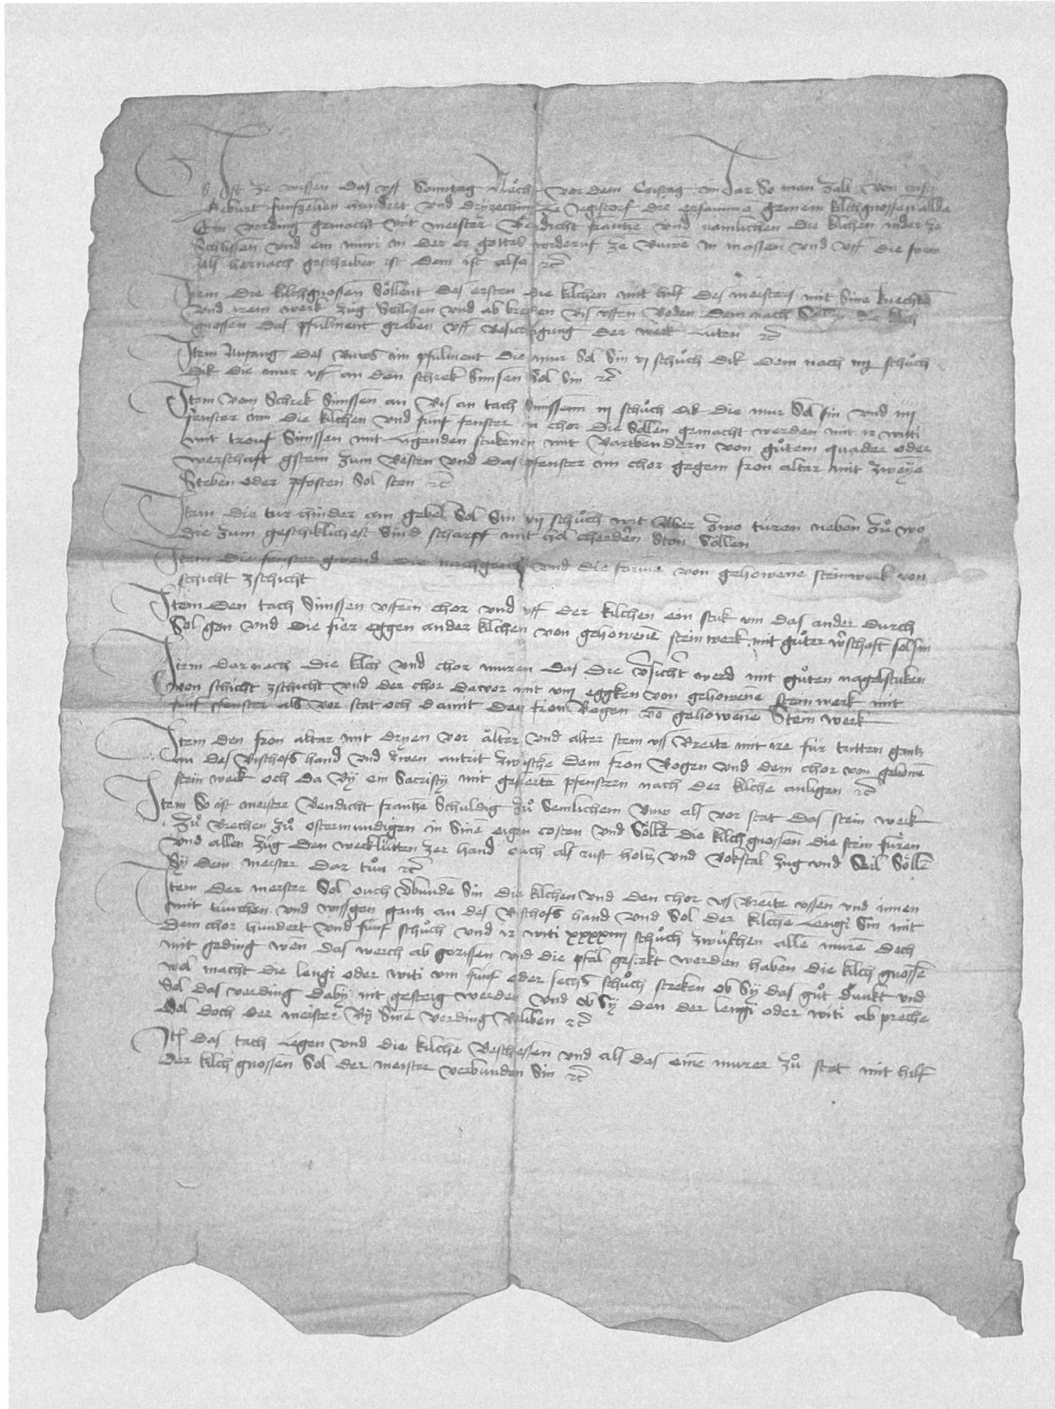 Es ist ze wissen das uff Sonntag nöch vor dem Cristag im Jar So man zalt von cristi
geburt funfzechen hundert und dryzechen ze Jegistorf die ersamme gemein kilchgnossen alda
Ein verding gemacht mit meister Bendicht frantze und namlichen die kilchen nider ze
Schlissen und ein nuwe in der er gottes widerumb ze buwe in massen und uff die form
als hernach geschriben ist dem ist also etc
Item die kilchgnossen Söllent des ersten die kilchen mit hilf des meisters mit Sine knechte
und irem werk zug Schlissen und ab brechen bis uffen boden dem nach Söllen die kilch
gnossen das pfulment graben uff besichtigung der werk luten etc
Item Anfang des buws im pfulment die mur Sol Sin vj schůch dik dem nach iiij schůch
dik die mur uff an den schrek Simsen Sol Sin etc
Item vom Schrek Simssen an bis an tach Simssenn iij schůch dik die mur Sol sin und iiij
fenster inn die kilchen und funf fenster in chor die Söllen gemacht werden mit ir witi
mit trouf Simssen mit ligenden stukenen mit wartbendern von gůtem quader oder
werschaft gstein zum besten und das pfenster im chor gegem fron altar mit zweÿe
Steben oder pfosten Sol sten etc
Item die tur hinder am gebel Sol Sin vij schůch wit Aber zwo turen neben zů wo
die zum geschiklichest Sind scharff mit hol cherden Ston Söllen
Item die fenster gwend die nachgend und die forme von gehowene steinwerk von
schicht zschicht
Item den tach Simssen uffem chor und uff der kilchen ein stuk um das ander durch
Sol gan und die fier eggen ander kilchen von gehowene stein werk mit gůter wschaft sol sin
Item darnach die kilch und chor muren das die vsicht werd mit gůten nagelstuken
von schicht zschicht und der chor davor mit viij eggken von gehowene stein werk mit
funf pfenster als vor stat och damit den fron bogen vo gehowene Stein werk
Item den fron altar mit dryen vor alter und alter stein uss breite mit ire für tritten gantz
an des bischofs hand und zwen antrit zwüsche dem fron bogen und dem chor von gehowne
stein werk och da by ein Sacristÿ mit gefierte pfenstern nach der kilche anligen etc
Item So ist meister bendicht frantze Schuldig zů Semlichem buw als vor stat das stein werk
zů brechen zů ostermundigen in Sine eigen costen und Sölle die kilchgnossen die stein füren
und allen züg den wercklütten zer hand ouch als rust holtz und bokstal zug und Seil Sölle
by dem meister dar tůn etc
Item der meister Sol ouch vbunde Sin die kilchen und den chor us breite ussen und innen
mit tünchen und wissgen gantz an des bischofs hand und Sol der kilche lengi Sin mit
dem chor hundert und funf schůch und ir witi xxxxiiij schůch zwüschen alle mure Doch
mit geding wen das werch ab gerissen und die pfäl gesterkt werden haben die kilch gnosse
wol macht die lengi oder witi um funf oder sechs schůch streken ob Sÿ das gůt dunkt und
Sol das verding dabÿ nit gesteig werden und ob Sÿ den der lengi oder witi ab preche
Sol doch der meister bÿ Sine verding bliben etc
Ite das tach Legen und die kilche beschessen und als das eine murer zů stat mit hilf
der kilch gnossen Sol der meister verbunden Sin etc